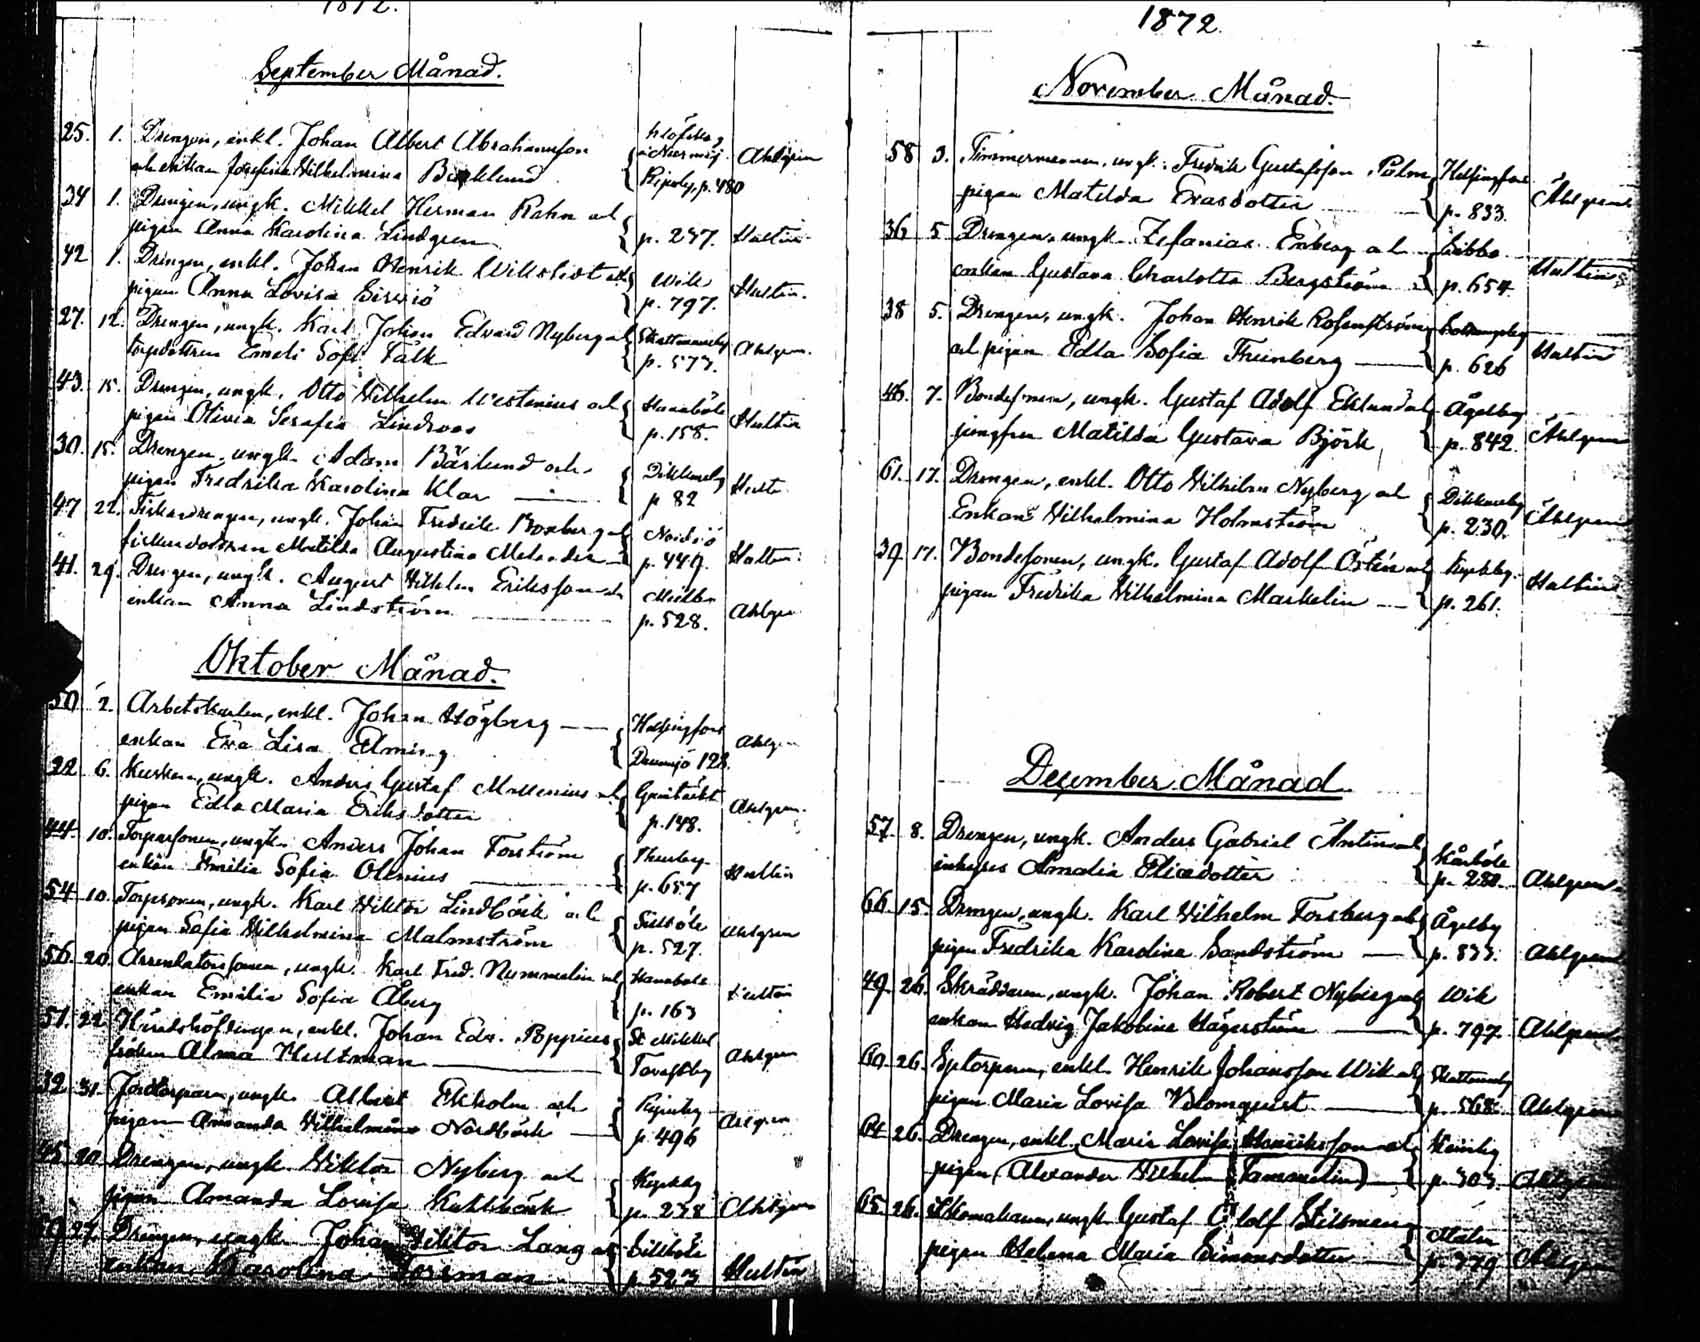 1872.
September Månad.
25. 1. Drengen, enkl. Johan Albert Abrahamsson
och enkan Josefina Wilhelmina Björklund
p. 480 Ahlgren
34 1. Drengen, ungk. Mikkel Herman Rahn och
pigan Anna Karolina Lindgren p. 237. Hultin
42 1. Drengen, enkl. Johan Henrik och
pigan Anna Lovisa Wik p. 797. Hultin.
27. 12. Drengen, ungk. Karl Johan Edvard Nyberg och
torpdottren Emeli Sofi Falk Skattmansby p. 573. Ahlgren.
43. 15. Drengen, ungk. Otto Wilhelm Westenius och
pigan Olivia Serafia Lindroos Hanaböle p. 158. Hultin
30. 15. Drengen, ungk. Adam Bärlund och
pigan Fredrika Karolina Klar Dikkursby p 82
47 22. Fiskardrengen, ungk. Johan Fredrik Boxberg och
fiskardottren Matilda Augustina Melander Nordsjö p. 449. Hultin
41. 29. Drengen, ungk. August Wilhelm Eriksson och
enkan Anna Lindström p. 528. Ahlgren
Oktober Månad.
50 2. Arbetskarlen, enkl. Johan Högberg
enkan Eva Lisa Elming Helsingfors 128. Ahlgren
22 6. Kusken, ungk. Anders Gustaf och
pigan Edla Maria Eriksdotter p. 148. Ahlgren.
44. 10. Torparsonen, ungk. Anders Johan Forström
enkan Emilia Sofia Olenius p. 657 Hultin
54 10. Torpsonen, ungk. Karl Viktor Lindbäck och
pigan Sofia Wilhelmina Malmström Sillböle p. 527. Ahlgren
56. 20. Arrendatorssonen, ungk. Karl Fred. Nummelin och
enkan Emilia Sofia Åberg Hanaböle p. 163 Hultin
51. 22. Häradshöfdingen, enkl. Johan Edv. Poppius
fröken Alma Hultman St Mikkel Ahlgren
32 31. Jordtorparen, ungk. Albert Ekholm och
pigan Amanda Wilhelmina Nordbäck p. 496 Ahlgren
45 20 Drengen, ungk. Viktor Nyberg och
pigan Amanda Lovisa Kyrkby p. 238 Ahlgren
59 27. Drengen, ungk. Johan Viktor Lang och
enkan Karolina Forsman Sillböle p. 523 Hultin
1872.
November Månad.
58 3. Timmermannen, ungk. Fredrik Gustafsson Palm
pigan Matilda Evasdotter Helsingfors p. 833. Ahlgren
36 5 Drengen, ungk. Zefanias Enberg och
enkan Gustava Charlotta Bergström Sibbo p. 654 Hultin
38 5. Drengen, ungk. Johan Henrik Rosenström
och pigan Edla Sofia Thunberg p. 626 Hultin
46. 7. Bondesonen, ungk. Gustaf Adolf Eklund och
jungfrun Matilda Gustava Björk Ågelby p. 842. Ahlgren
61. 17. Drengen, enkl. Otto Wilhelm Nyberg och
Enkan Wilhelmina Holmström Dikkursby p. 230. Ahlgren
39 17. Bondesonen, ungk. Gustaf Adolf Östen och
pigan Fredrika Wilhelmina Markelin Kyrkby. p. 261. Hultin
December Månad.
57. 8. Drengen, ungk. Anders Gabriel och
inhyses Amalia Eliedotter Kårböle p. 280 Ahlgren
66. 15. Drengen, ungk. Karl Wilhelm Forsberg och
pigan Fredrika Karolina Sandström Ågelby p. 833. Ahlgren
49. 26. Skräddaren, ungk. Johan Robert Nyberg och
enkan Hedvig Jakobina Hägerström Wik p. 797. Ahlgren
60. 26. enkl. Henrik Johansson Wik och
pigan Maria Lovisa Blomqvist Skattmansby p. 568. Ahlgren
64. 26. Drengen, enkl. Maria Lovisa Henriksson och
pigan (Alexander Wilhelm Tammelin) p. 303. Ahlgren
65. 26. Skomakaren, ungk. Gustaf Adolf
pigan Helena Maria Simonsdotter p. 779 Ahlgren